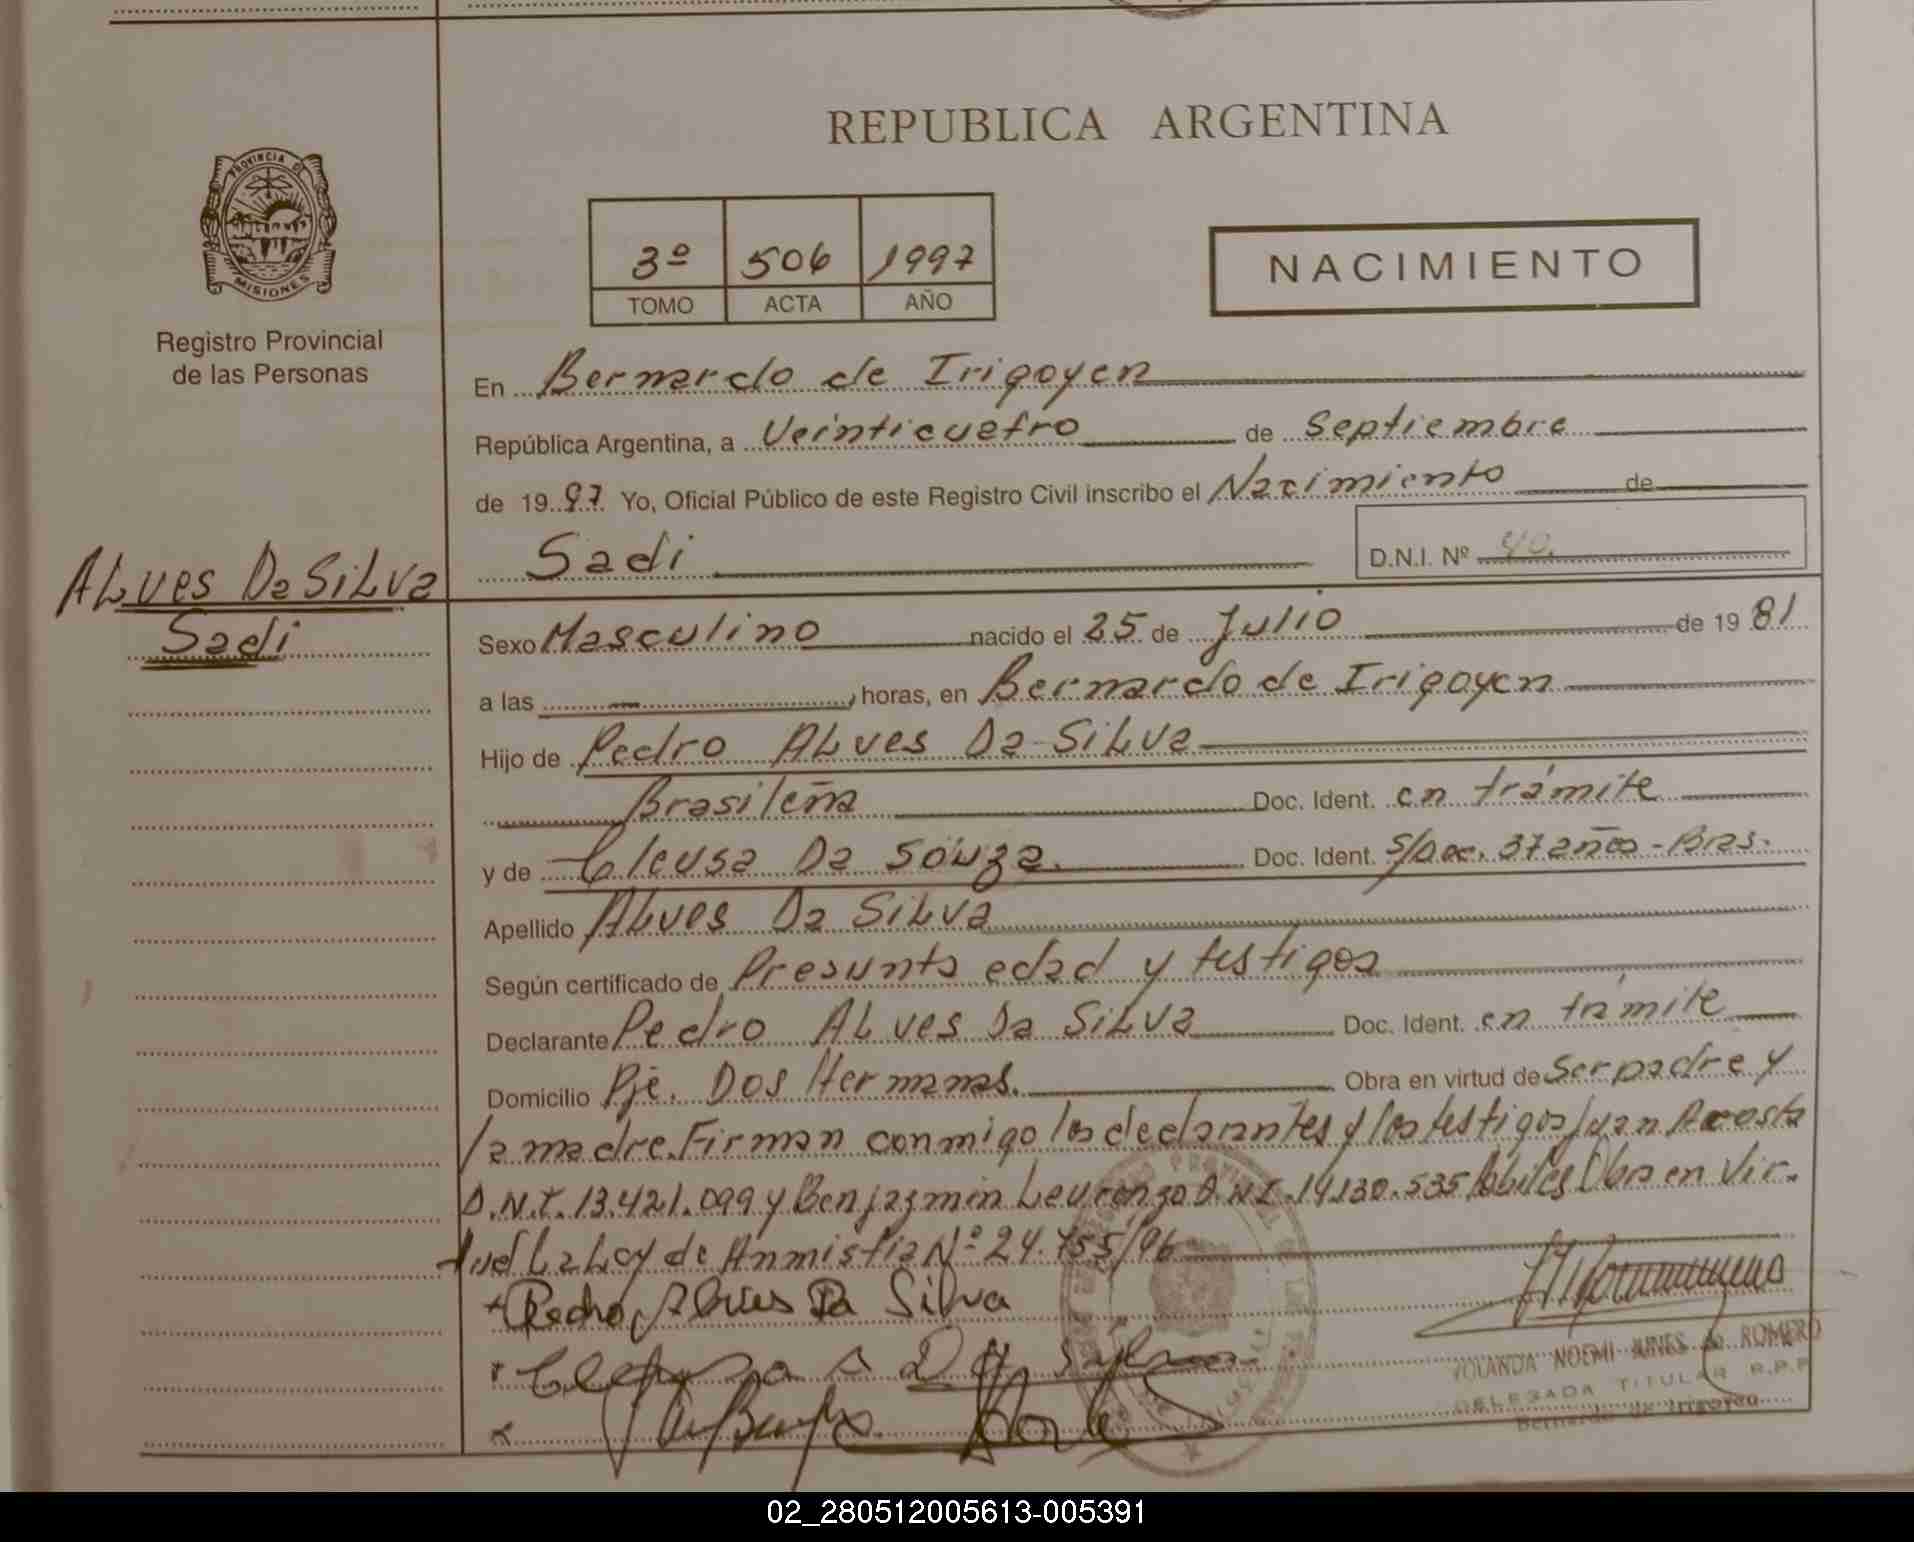 REPUBLICA ARGENTINA
PROVINCIA DE
MISIONES
Registro Provincial
de las Personas
3º 506 1997
TOMO ACTA AÑO
NACIMIENTO
En Bernardo de Irigoyen
República Argentina, a Veinticuatro de Septiembre
de 19 97 Yo, Oficial Público de este Registro Civil inscribo el Nacimiento de
Sadi D.N.I. Nº 40.
ALVES Da SiLVa
Sadi
Sexo Masculino nacido el 25 de Julio de 19 81
a las — horas, en Bernardo de Irigoyen
Hijo de Pedro ALves Da SiLva
Brasileña Doc. Ident. en trámite
y de Cleusa Da Souza. Doc. Ident. S/Doc. 37 años - Bras.
Apellido ALves Da SiLva
Según certificado de Presunta edad y testigos
Declarante Pedro ALves Da SiLva Doc. Ident. en trámite
Domicilio Pje. Dos Hermanas. Obra en virtud de Ser padre y
la madre. Firman conmigo los declarantes y los testigos Juan Acosta
D.N.I. 13.421.099 y Benjazmin Leurenzo D.N.I. 14.130.535 hábiles Obra en Vir-
tud La Ley de Anmistia Nº 24.755/96
+ Pedro Alves Da Silva
+
x
YOLANDA NOEMI de ROMERO
DELEGADA TITULAR R.P.P.
Bernardo de Irigoyen
02_280512005613-005391